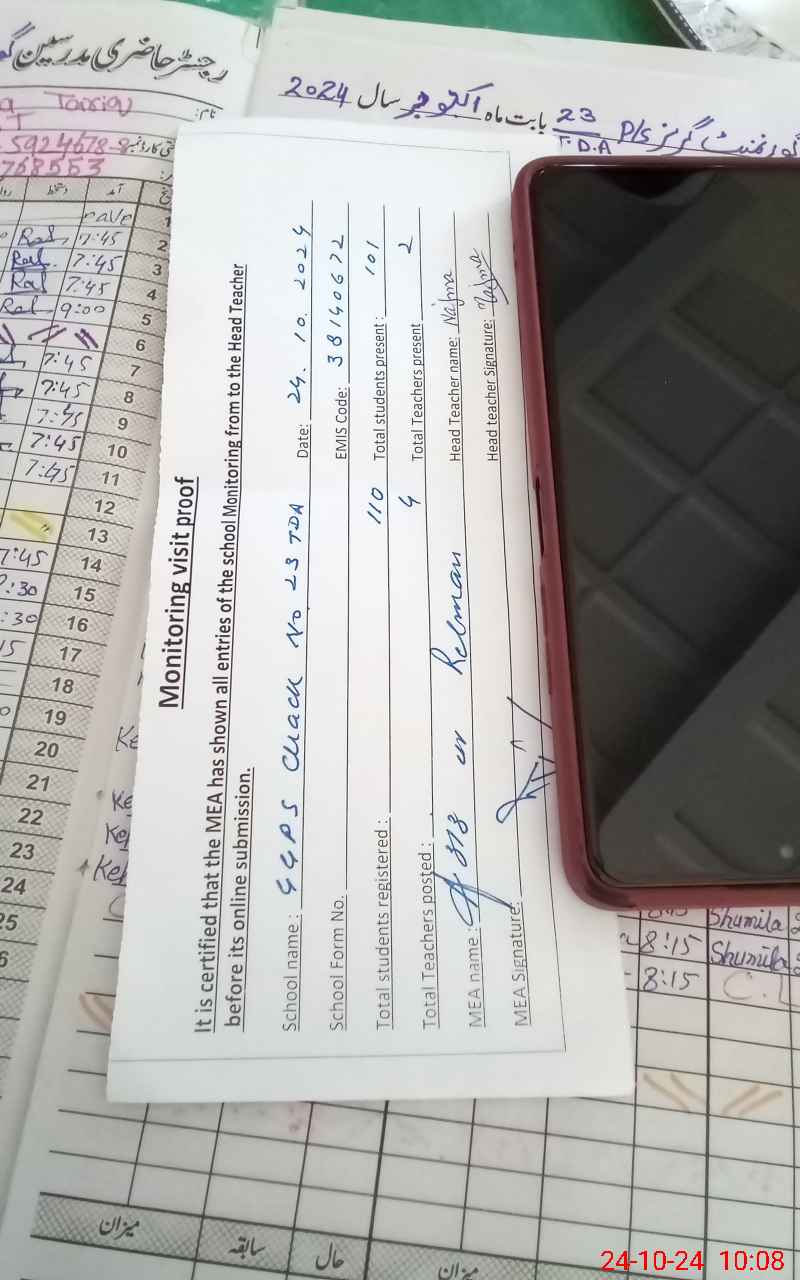 رجسٹر حاضری مدرسین
نام:
5924678-8
768553
بابت ماہ اکتوبر سال 2024
گورنمنٹ گرلز P/S 23
T.D.A
Monitoring visit proof
It is certified that the MEA has shown all entries of the school Monitoring from to the Head Teacher
before its online submission.
School name: GGPS Chack No 23 TDA Date: 24.10.2024
School Form No. EMIS Code: 38140672
Total students registered: 110 Total students present: 101
Total Teachers posted: 4 Total Teachers present 2
MEA name: Aziz ur Rehman Head Teacher name: Najma
MEA Signature: Head teacher Signature: Najma
آمد
دستخط
1
2 7:45
3 7:45
4 7:45
5 9:00
6
7 7:45
8 7:45
9 7:45
10 7:45
11 7:45
12
13
14 7:45
15
16
17
18
19
20
21
22
23
24
25
Shumila
8:15 Shumila
8:15 C.L
میزان
سابقہ
حال
میزان
24-10-24 10:08